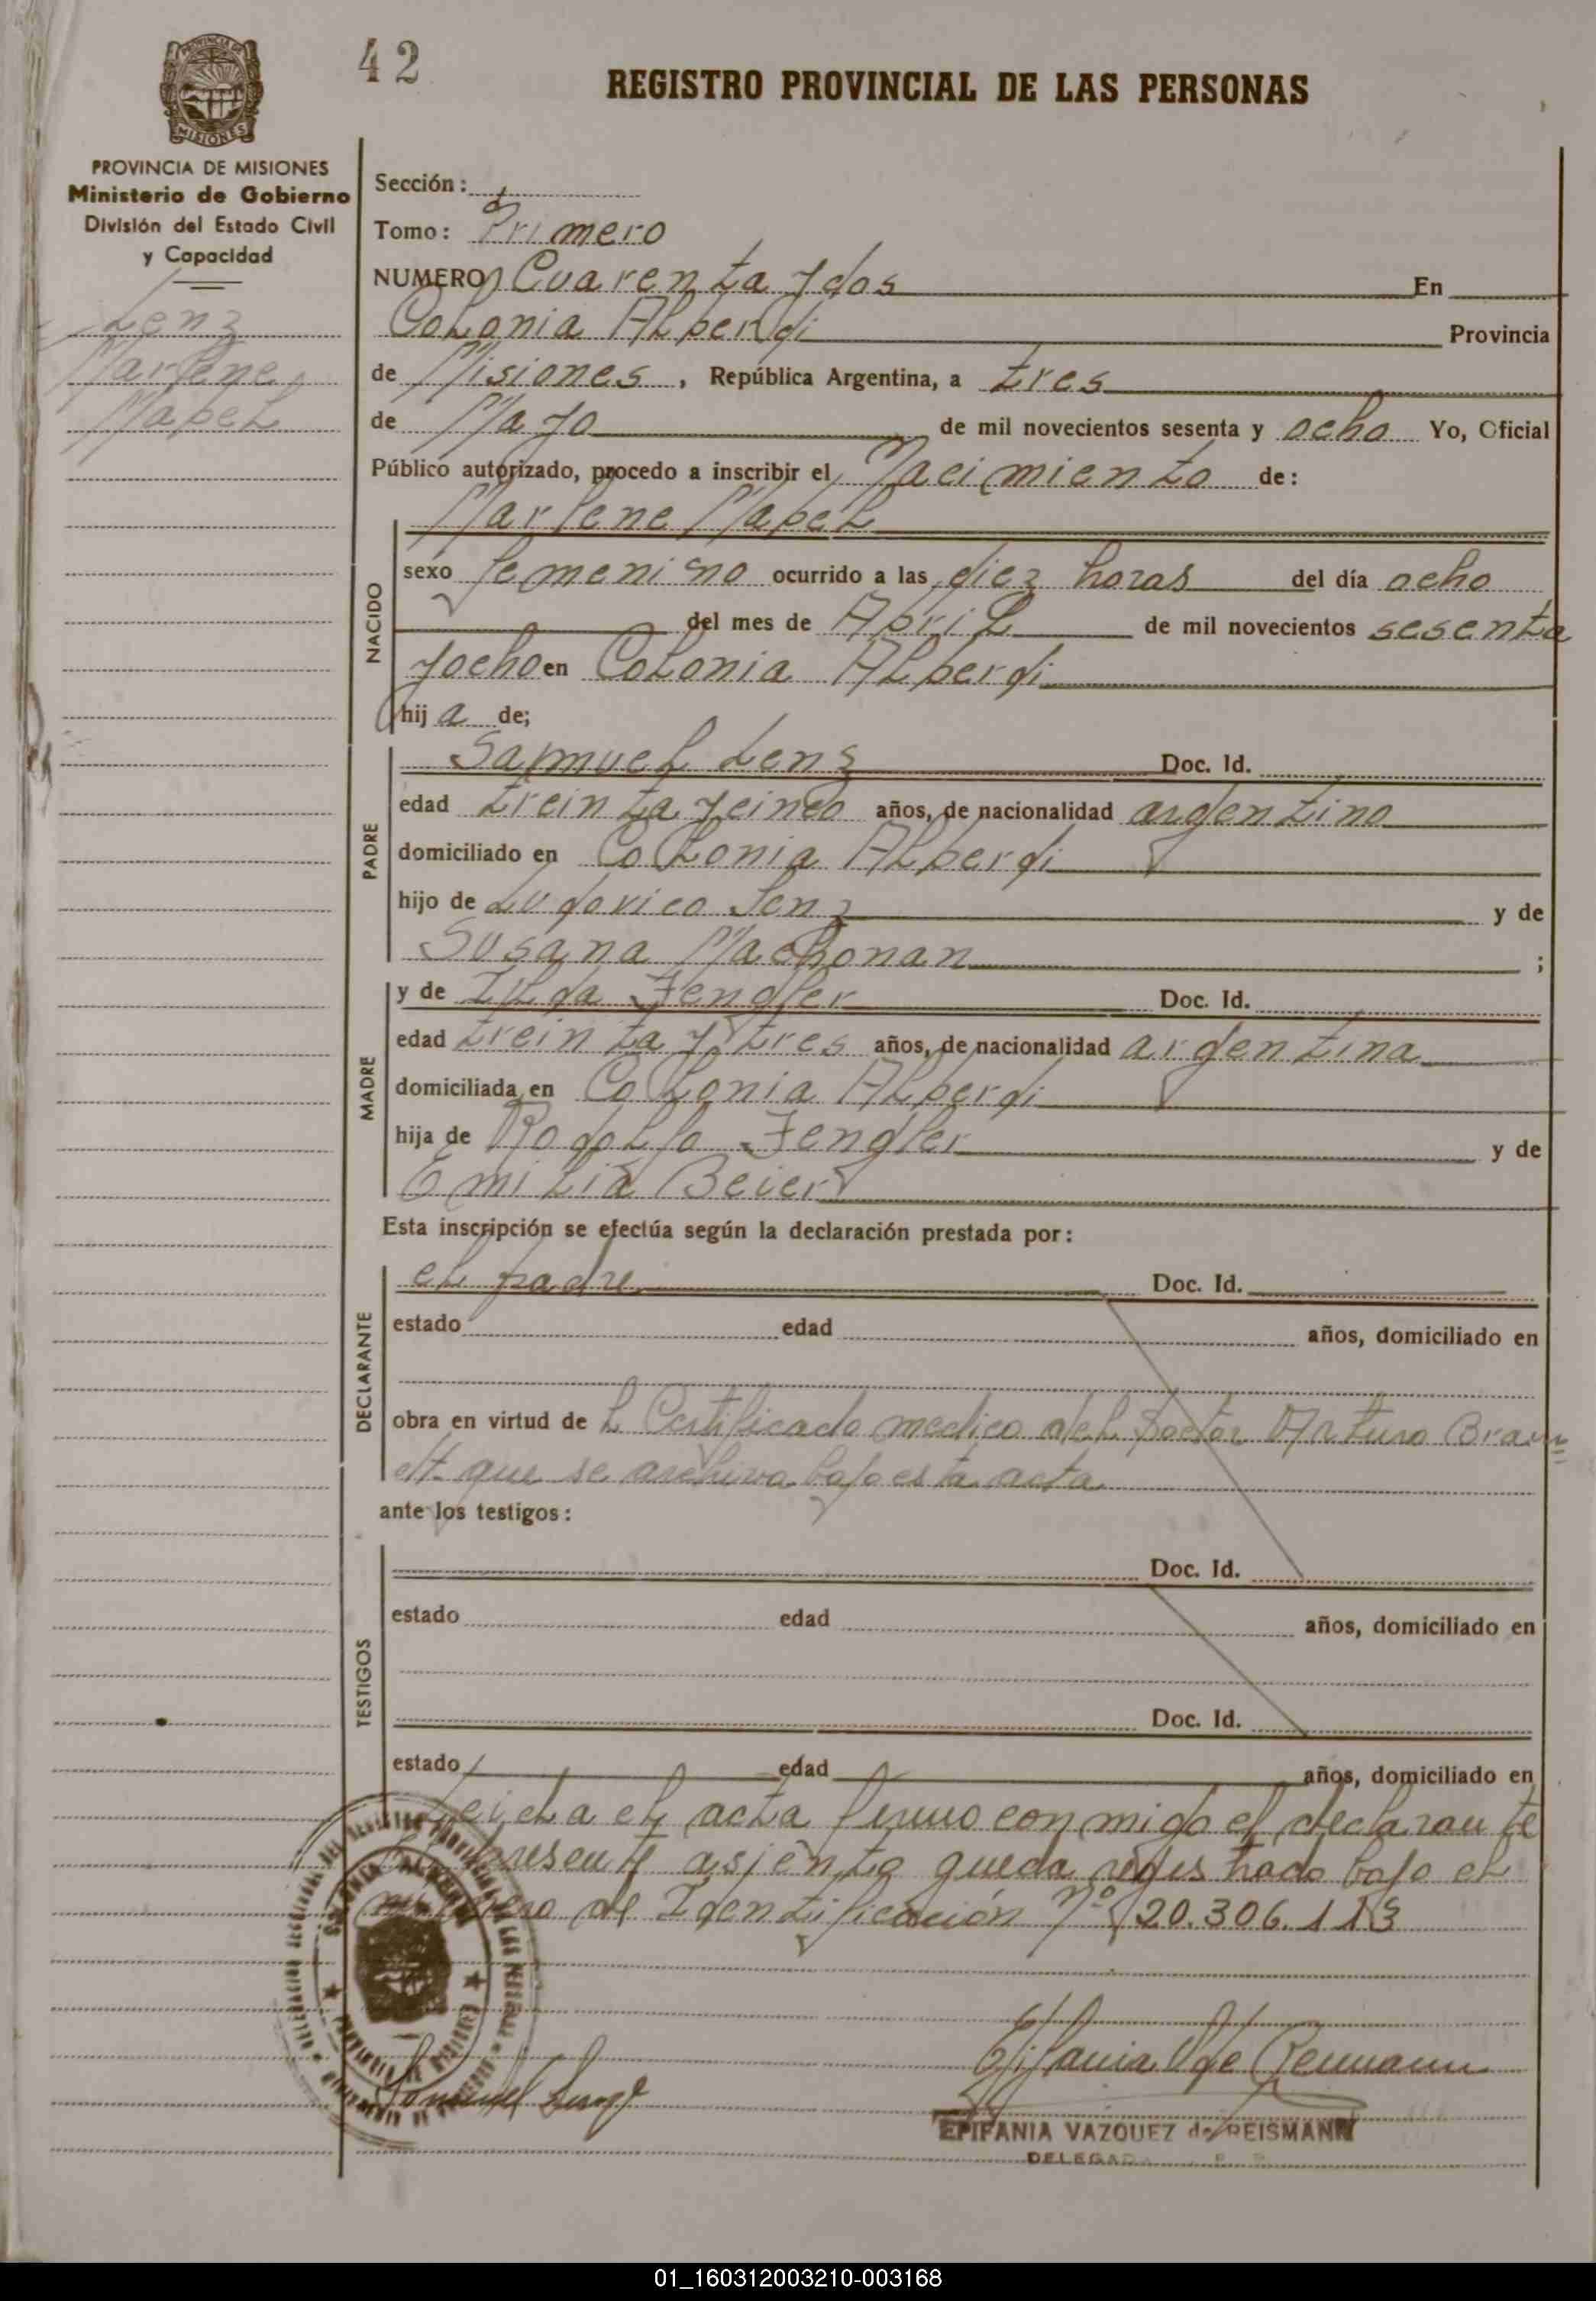 42
REGISTRO PROVINCIAL DE LAS PERSONAS
PROVINCIA DE
MISIONES
PROVINCIA DE MISIONES
Ministerio de Gobierno
División del Estado Civil
y Capacidad
Lenz
Marlene
Mabel
Sección:
Tomo: Primero
NUMERO Cuarenta y dos En
Colonia Alberdi Provincia
de Misiones, República Argentina, a tres
de Mayo de mil novecientos sesenta y ocho Yo, Oficial
Público autorizado, procedo a inscribir el Nacimiento de:
Marlene Mabel
NACIDO
sexo femenino ocurrido a las diez horas del día ocho
del mes de Abril de mil novecientos sesenta
y ocho en Colonia Alberdi
hija de;
PADRE
Samuel Lenz Doc. Id.
edad treinta y cinco años, de nacionalidad argentino
domiciliado en Colonia Alberdi
hijo de Ludovico Lenz y de
Susana ;
MADRE
y de Ilda Fengler Doc. Id.
edad treinta y tres años, de nacionalidad argentina
domiciliada en Colonia Alberdi
hija de Rodolfo Fengler y de
Emilia Beier
Esta inscripción se efectúa según la declaración prestada por:
DECLARANTE
el padre Doc. Id.
estado edad años, domiciliado en
obra en virtud de L Certificado medico del Doctor Arturo Braun
que se archiva bajo esta acta
ante los testigos:
TESTIGOS
Doc. Id.
estado edad años, domiciliado en
Doc. Id.
estado edad años, domiciliado en
Leida el acta firmo conmigo el declarante
presente asiento queda registrado bajo el
numero de Identificación Nº 20.306.113
Samuel Lenz
Epifania V de Reismann
EPIFANIA VAZQUEZ de REISMANN
DELEGADA
01_160312003210-003168